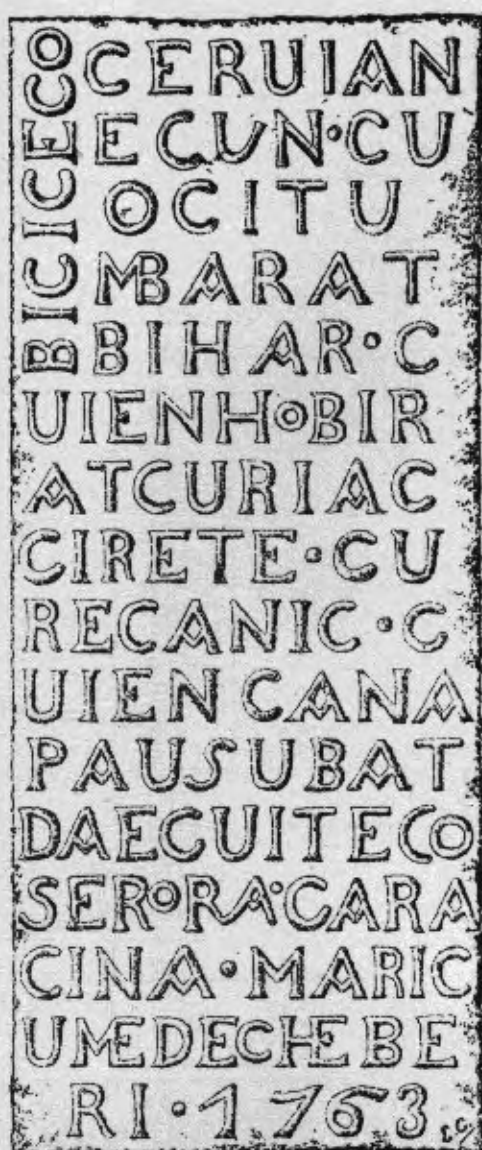 BICICECO
CERUIAN
ECUN·CU
OCITU
MBARAT
BIHAR·C
UIENHOBIR
ATCURIAC
CIRETE·CU
RECANIC·C
UIEN CANA
PAUSUBAT
DAECUITECO
SERORA·CARA
CINA·MARIC
UMEDECHEBE
RI·1763